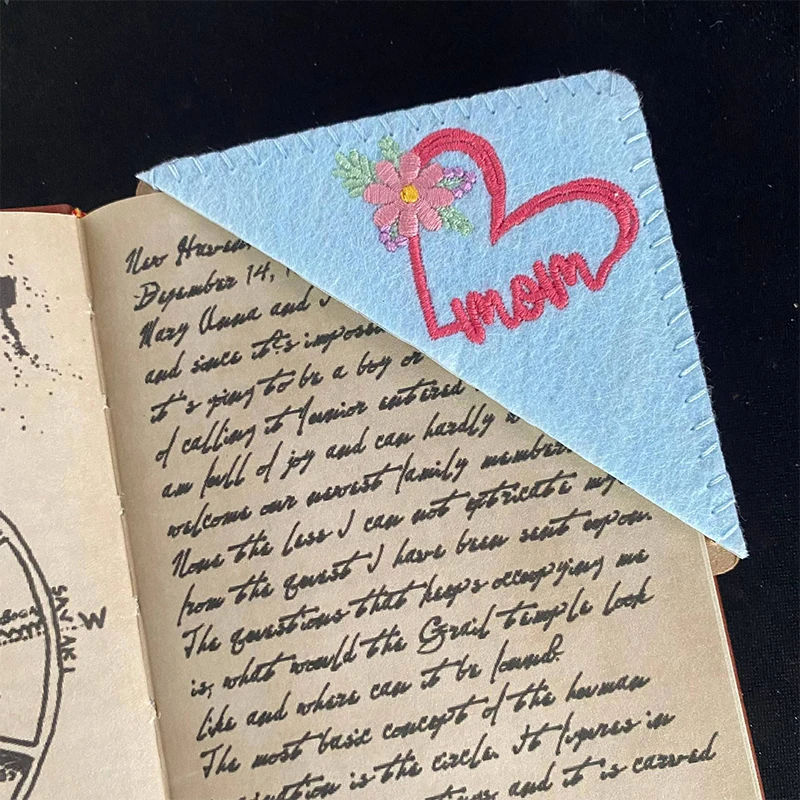 mom
New Haven
Dezember 14, 1
Mary Anna and I
and since it's impossi
it's ging to be a boy or
of calling it Junior entered
am full of joy and can hardly w
welcome our newest family member
None the less I can not extricate my
from the quest I have been sent upon.
The questions that keeps occopying me
is, what would the Grail temple look
like and where can it be found?
The most basic concept of the human
ination is the circle. It figures in
and it is carved
W